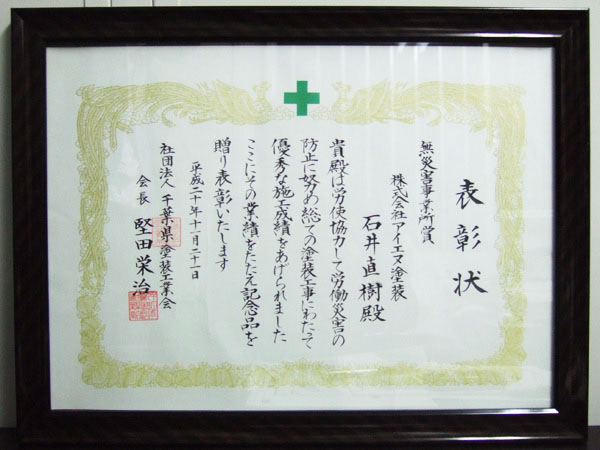 表彰状
無災害事業所賞
株式会社アイエヌ塗装
石井直樹殿
貴殿は労使協力して労働災害の
防止に努め総ての塗装工事にわたって
優秀な施工成績をあげられました
ここにその業績をたたえ記念品を
贈り表彰いたします
平成二十年十一月二十一日
社団法人千葉県塗装工業会
会長 堅田栄治